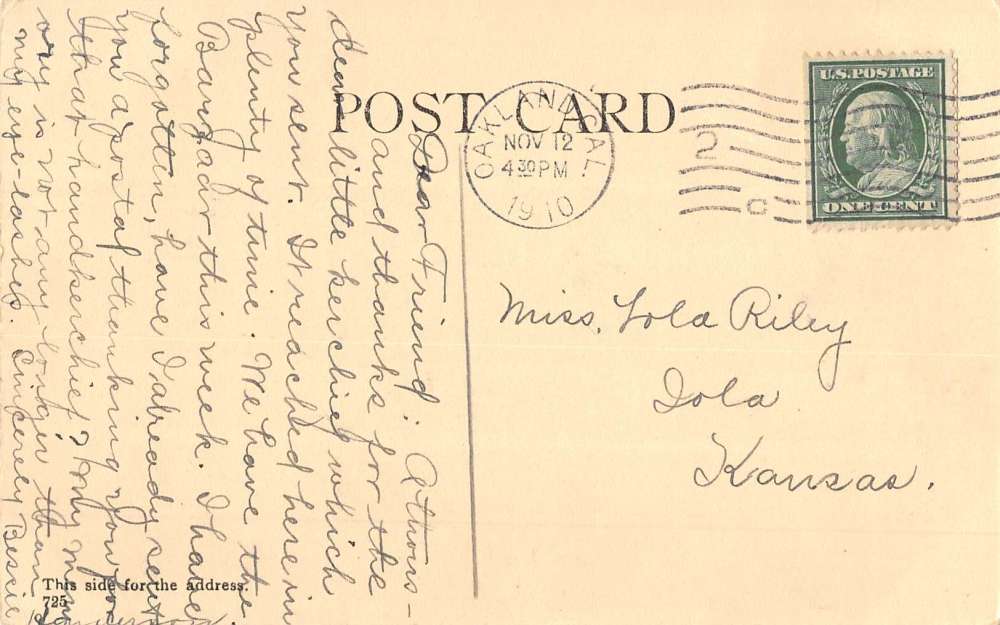 POST CARD
OAKLAND, CAL.
NOV 12
4 30 PM
1910
2
C
U.S. POSTAGE
ONE CENT
Dear Friend: A thous-
and thanks for the
dear little kerchief which
you sent. It reached here in
plenty of time. We have the
Bazaar this week. I have
forgotten, have I already sent
you a postal thanking you for
that handkerchief? My mem-
ory is not any longer than
my eye-lashes. Sincerely Bessie
Miss. Lola Riley
Iola
Kansas.
This side for the address.
725